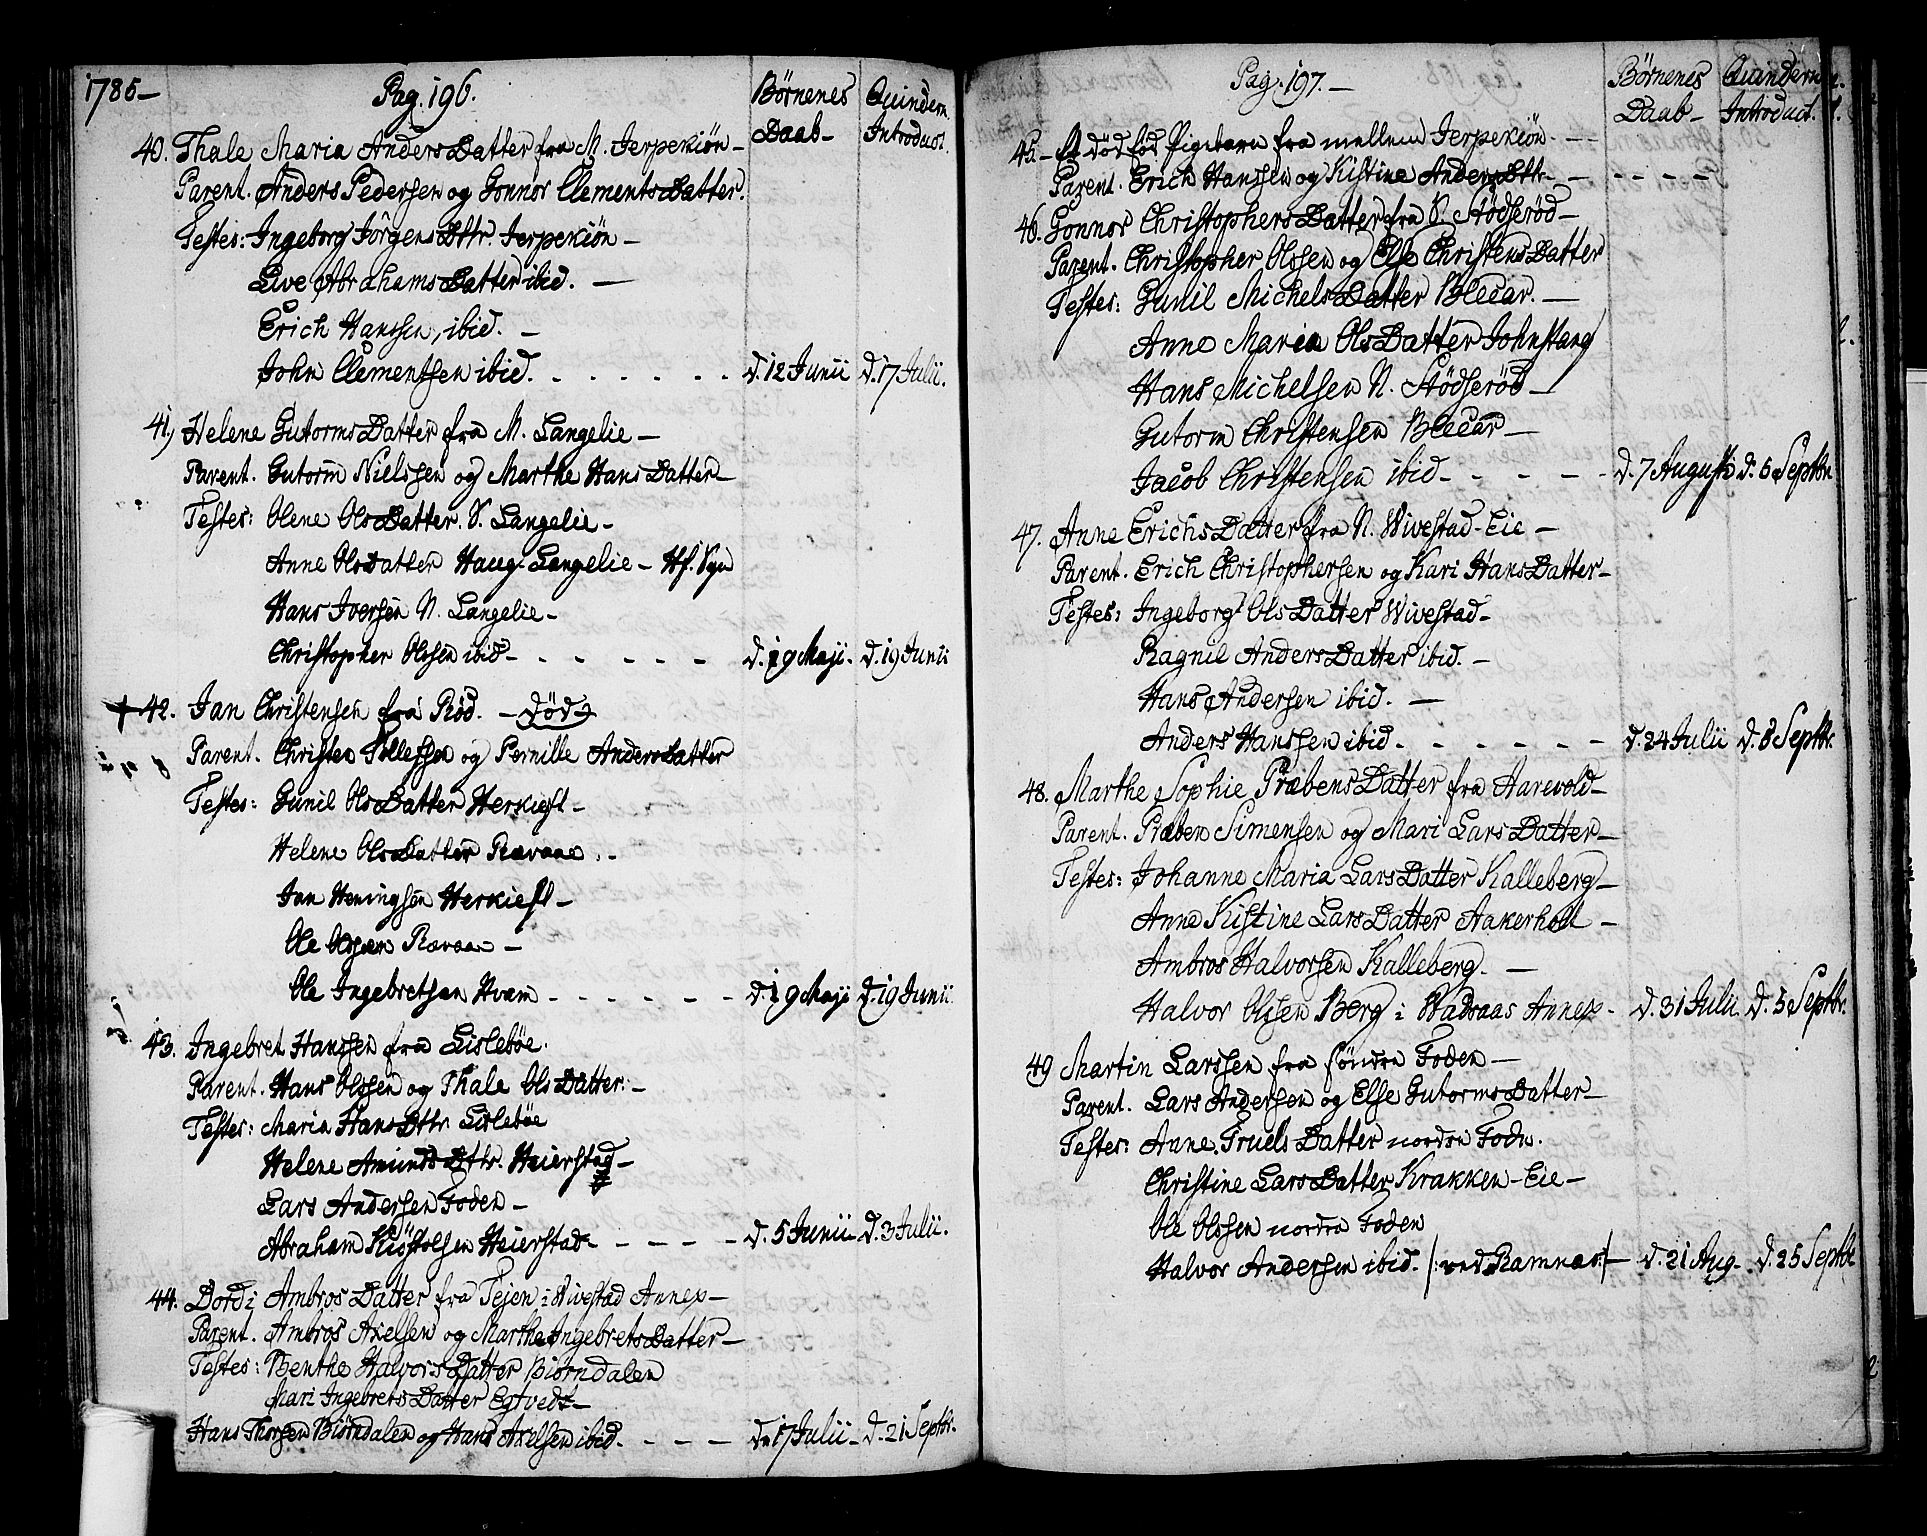 1785 —
Pag. 196.
Börnenes Daab —
Quindern. Introduct.
40. Thale Maria Anders Datter fra M. Jerpekiön —
Parent. Anders Pedersen og Gonnor Clements Datter.
Testes: Ingeborg Jörgens Dttr. Jerpekiön —
Live Abrahams Datter ibid. —
Erich Hanssen, ibid. —
John Clementsen ibid. - - - - - - d. 12 Junii d. 17 Julii.
41, Helene Gutorms Datter fra M. Langelie —
Parent. Gutorm Nielssen og Marthe Hans Datter —
Testes: Olene Ols Datter. S. Langelie —
Anne Olsdatter Haug-Langelie —
Hans Iversen N. Langelie —
Christopher Olssen ibid - - - - - d. 29 Maji - d. 19 Junii
† 42. Jan Christensen fra Röd. — död
Parent. Christen Tellefssen og Pernille Anders Datter
Testes: Gunil Ols Datter Herkiest —
Helene Ols Datter Ravaae . -
Jan Heningsen Herkiest —
Ole Olssen Ravaae —
Ole Ingebretsen Hvam - - - - - - d. 29 Maji d. 19 Junii.
43. Ingebret Hanssen fra Lislebøe.
Parent. Hans Olssen og Thale Ols Datter: —
Testes: Maria Hans Dttr Lislebøe
Helene Amunds Dttr. Heierstad —
Lars Andersen Foden —
Abraham Kiøstolsen Heierstad - - - - - d. 5 Junii - d. 3 Julii.
44. Dordi Ambros Datter fra Tejen i Wivestad Annex —
Parent. Ambros Axelsen og Marthe Ingebrets Datter —
Testes: Benthe Halvors Datter Biørndalen
Mari Ingebrets Datter Egtvedt —
Hans Thorsen Biørndalen og Hans Axelsen ibid. - - - d. 17 Julii - d. 21 Septbr.
Pag. 197. —
Börnenes Daab —
Quindern Introduct.
45. — Et död föd Pigebarn fra mellem Jerpekiön - - -
Parent. Erich Hanssen og Kistine Anders Dttr — — - - - -
46. Gonnor Christophers Datter fra S. Stödseröd —
Parent. Christopher Olssen og Else Christens Datter
Testes: Gunil Michels Datter Bleear. —
Anne Maria Ols Datter Johnstang
Hans Michelsen N. Stödseröd —
Gutorm Christensen Bleear —
Jacob Christensen ibid - - - - - d. 7 Augusti d. 5 Septbr.
47. Anne Erichs Datter fra N. Wivestad-Eie —
Parent. Erich Christophersen og Kari Hans Datter —
Testes: Ingeborg Ols Datter Wivestad —
Ragnil Anders Datter ibid. —
Hans Andersen ibid. —
Anders Hanssen ibid - - - - - - d. 24 Julii d. 8 Septbr.
48. Marthe Sophie Præbens Datter fra Aarevold —
Parent. Præben Simensen og Mari Lars Datter —
Testes: Johanne Maria Lars Datter Kalleberg —
Anne Kistine Lars Datter Aakerholt —
Ambros Halvorsen Kalleberg. —
Halvor Olssen Berg i Wadsaas Annex - d. 31 Julii d. 5 Septbr.
49 Martin Larssen fra söndre Foden —
Parent. Lars Andersen og Else Gutorms Datter —
Testes: Anne Truels Datter nordre Foden.
Christine Lars Datter Krakken-Eie —
Ole Olssen nordre Foden
Halvor Andersen ibid. /: ved Ramnæs :/ — d. 21 Aug - d. 25 Septbr